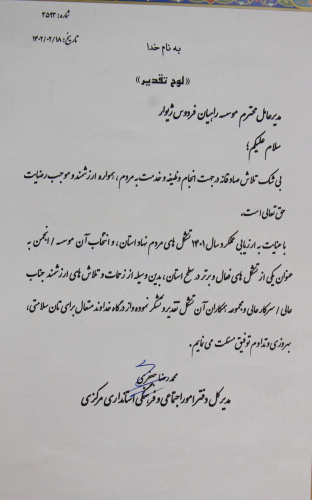 شماره: ۲۵۹۳
تاریخ: ۱۴۰۲/۰۲/۱۸
به نام خدا
«لوح تقدیر»
مدیرعامل محترم موسسه راهیان فردوس ژیوار
سلام علیکم؛
بی شک تلاش صادقانه در جهت انجام وظیفه و خدمت به مردم، همواره ارزشمند و موجب رضایت
حق تعالی است.
با عنایت به ارزیابی عملکرد سال ۱۴۰۱ تشکل های مردم نهاد استان، و انتخاب آن موسسه / انجمن به
عنوان یکی از تشکل های فعال و برتر در سطح استان، بدین وسیله از زحمات و تلاش های ارزشمند جناب
عالی / سرکار عالی و مجموعه همکاران آن تشکل تقدیر و تشکر نموده و از درگاه خداوند متعال برای تان سلامتی،
بهروزی و تداوم توفیق مسئلت می نمایم.
محمدرضا جعفری
مدیرکل دفتر امور اجتماعی و فرهنگی استانداری مرکزی